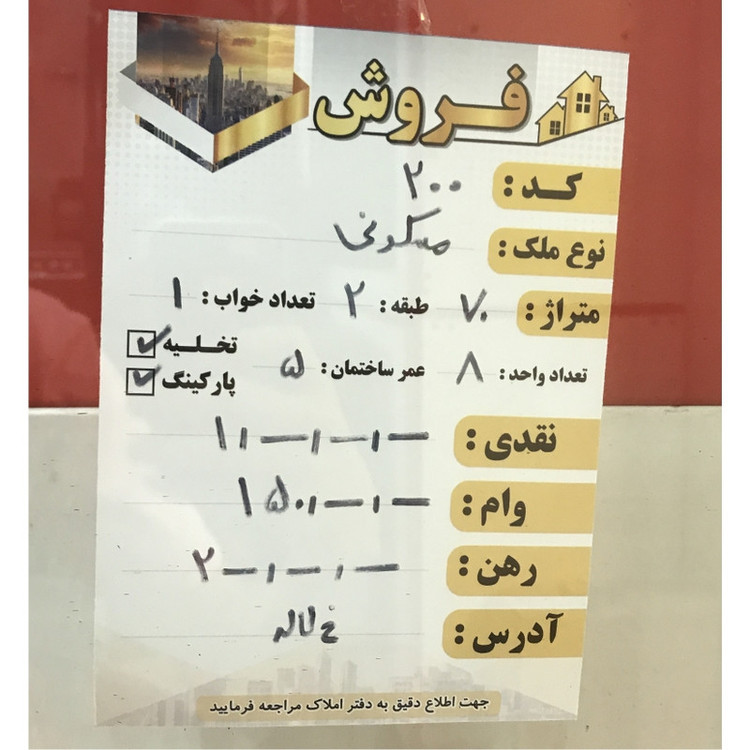 فروش
کد : ۲۰۰
نوع ملک : مسکونی
متراژ : ۷۰ طبقه : ۲ تعداد خواب : ۱
تعداد واحد : ۸ عمر ساختمان : ۵ تخلیه ✓
پارکینگ ✓
نقدی :
وام :
رهن :
آدرس : خ لاله
جهت اطلاع دقیق به دفتر املاک مراجعه فرمایید